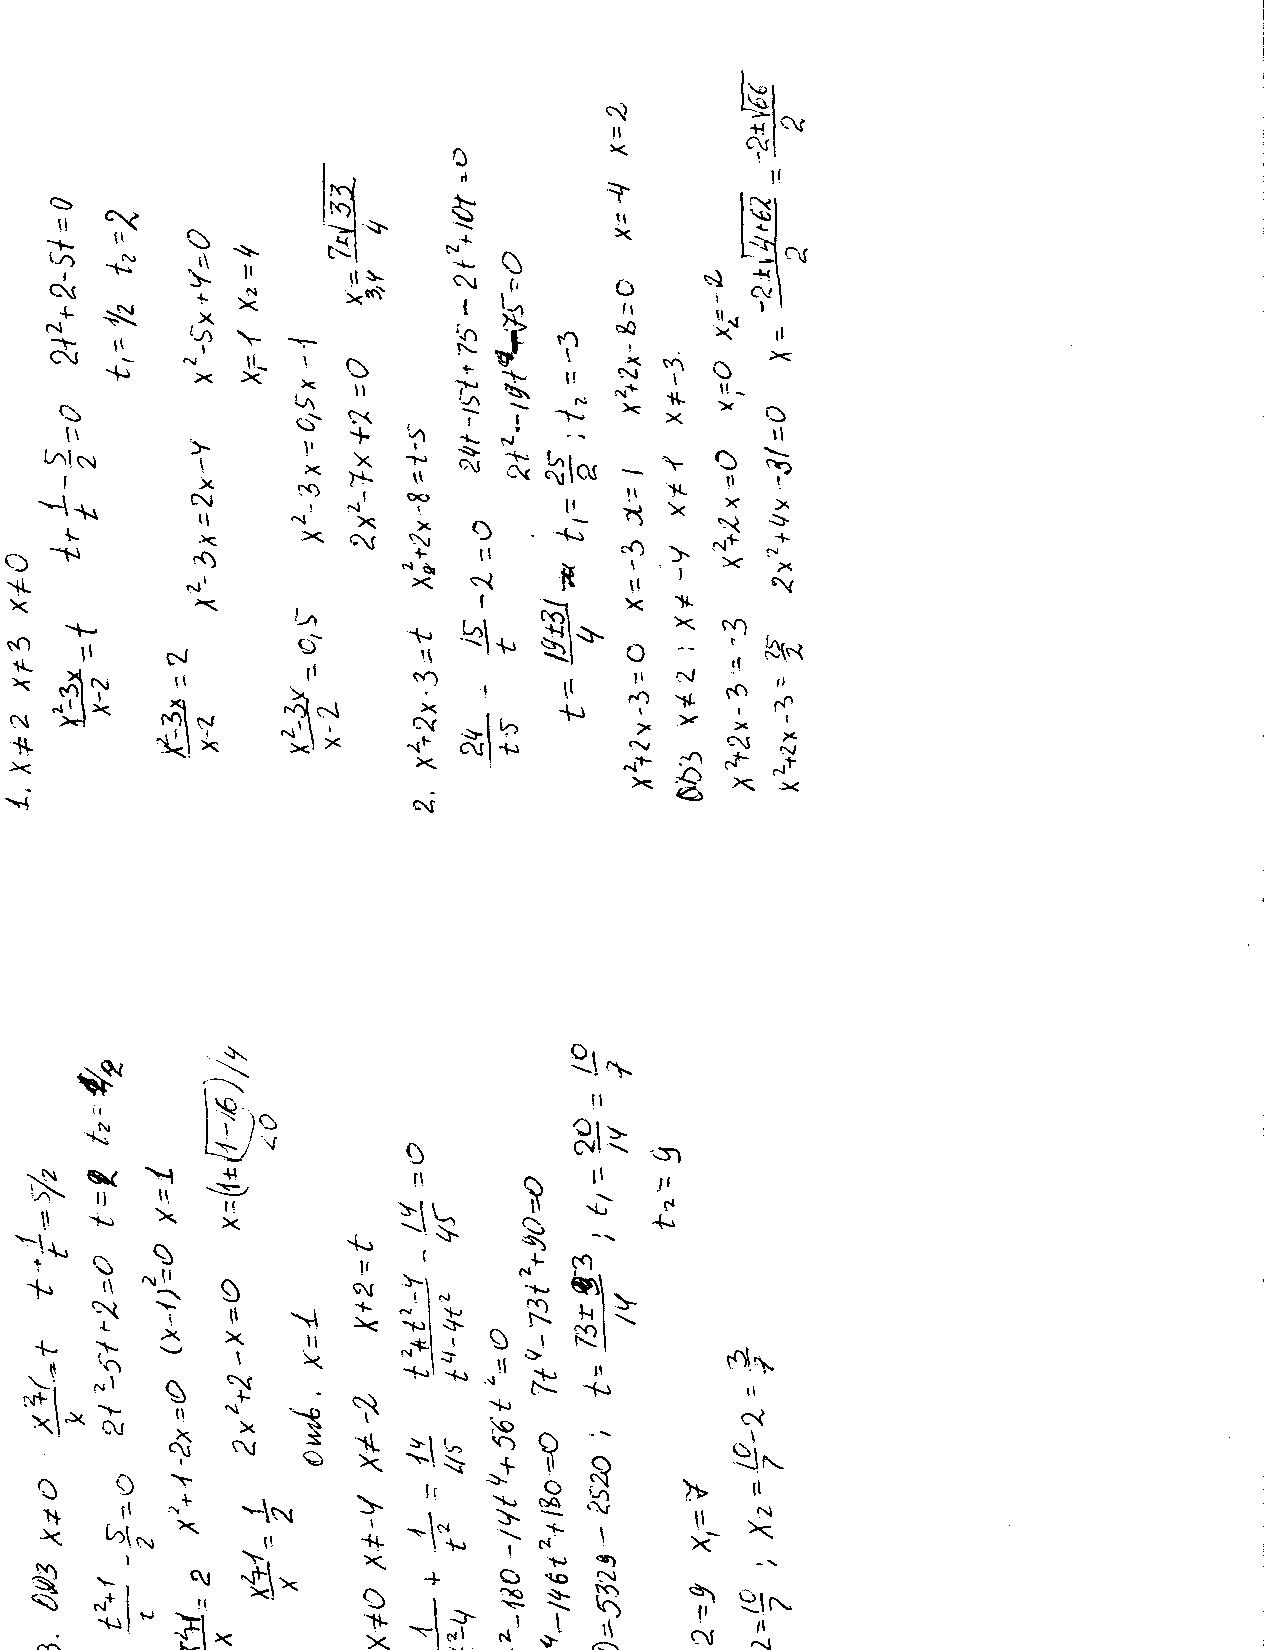 1. x≠2 x≠3 x≠0
(x²-3x)/(x-2)=t t+1/t-5/2=0 2t²+2-5t=0
t₁=1/2 t₂=2
(x²-3x)/(x-2)=2 x²-3x=2x-4 x²-5x+4=0
x₁=1 x₂=4
(x²-3x)/(x-2)=0,5 x²-3x=0,5x-1
2x²-7x+2=0 x₃,₄=(7±√33)/4
2. x²+2x-3=t x²+2x-8=t-5
24/(t-5) - 15/t -2=0 24t-15t+75-2t²+10t=0
2t²-19t-75=0
t=(19±31)/4 t₁=25/2; t₂=-3
x²+2x-3=0 x=-3 x=1 x²+2x-8=0 x=-4 x=2
ОДЗ x≠2; x≠-4 x≠1 x≠-3
x²+2x-3=-3 x²+2x=0 x₁=0 x₂=-2
x²+2x-3=25/2 2x²+4x-31=0 x=(-2±√(4+62))/2=(-2±√66)/2
3. ОДЗ x≠0 (x²+1)/x=t t+1/t=5/2
(t²+1)/t-5/2=0 2t²-5t+2=0 t=2 t₂=1/2
(x²+1)/x=2 x²+1-2x=0 (x-1)²=0 x=1
(x²+1)/x=1/2 2x²+2-x=0 x=(1±√(1-16))/4
<0
Отв. x=1
x≠0 x≠-4 x≠-2 x+2=t
1/(t²-4) + 1/t² = 14/45 (t²+t²-4)/(t⁴-4t²) - 14/45=0
²-180-14t⁴+56t²=0
⁴-146t²+180=0 7t⁴-73t²+90=0
)=5329-2520; t=(73±53)/14; t₁=20/14=10/7
t₂=9
2=9 x₁=7
2=10/7; x₂=10/7-2=3/7